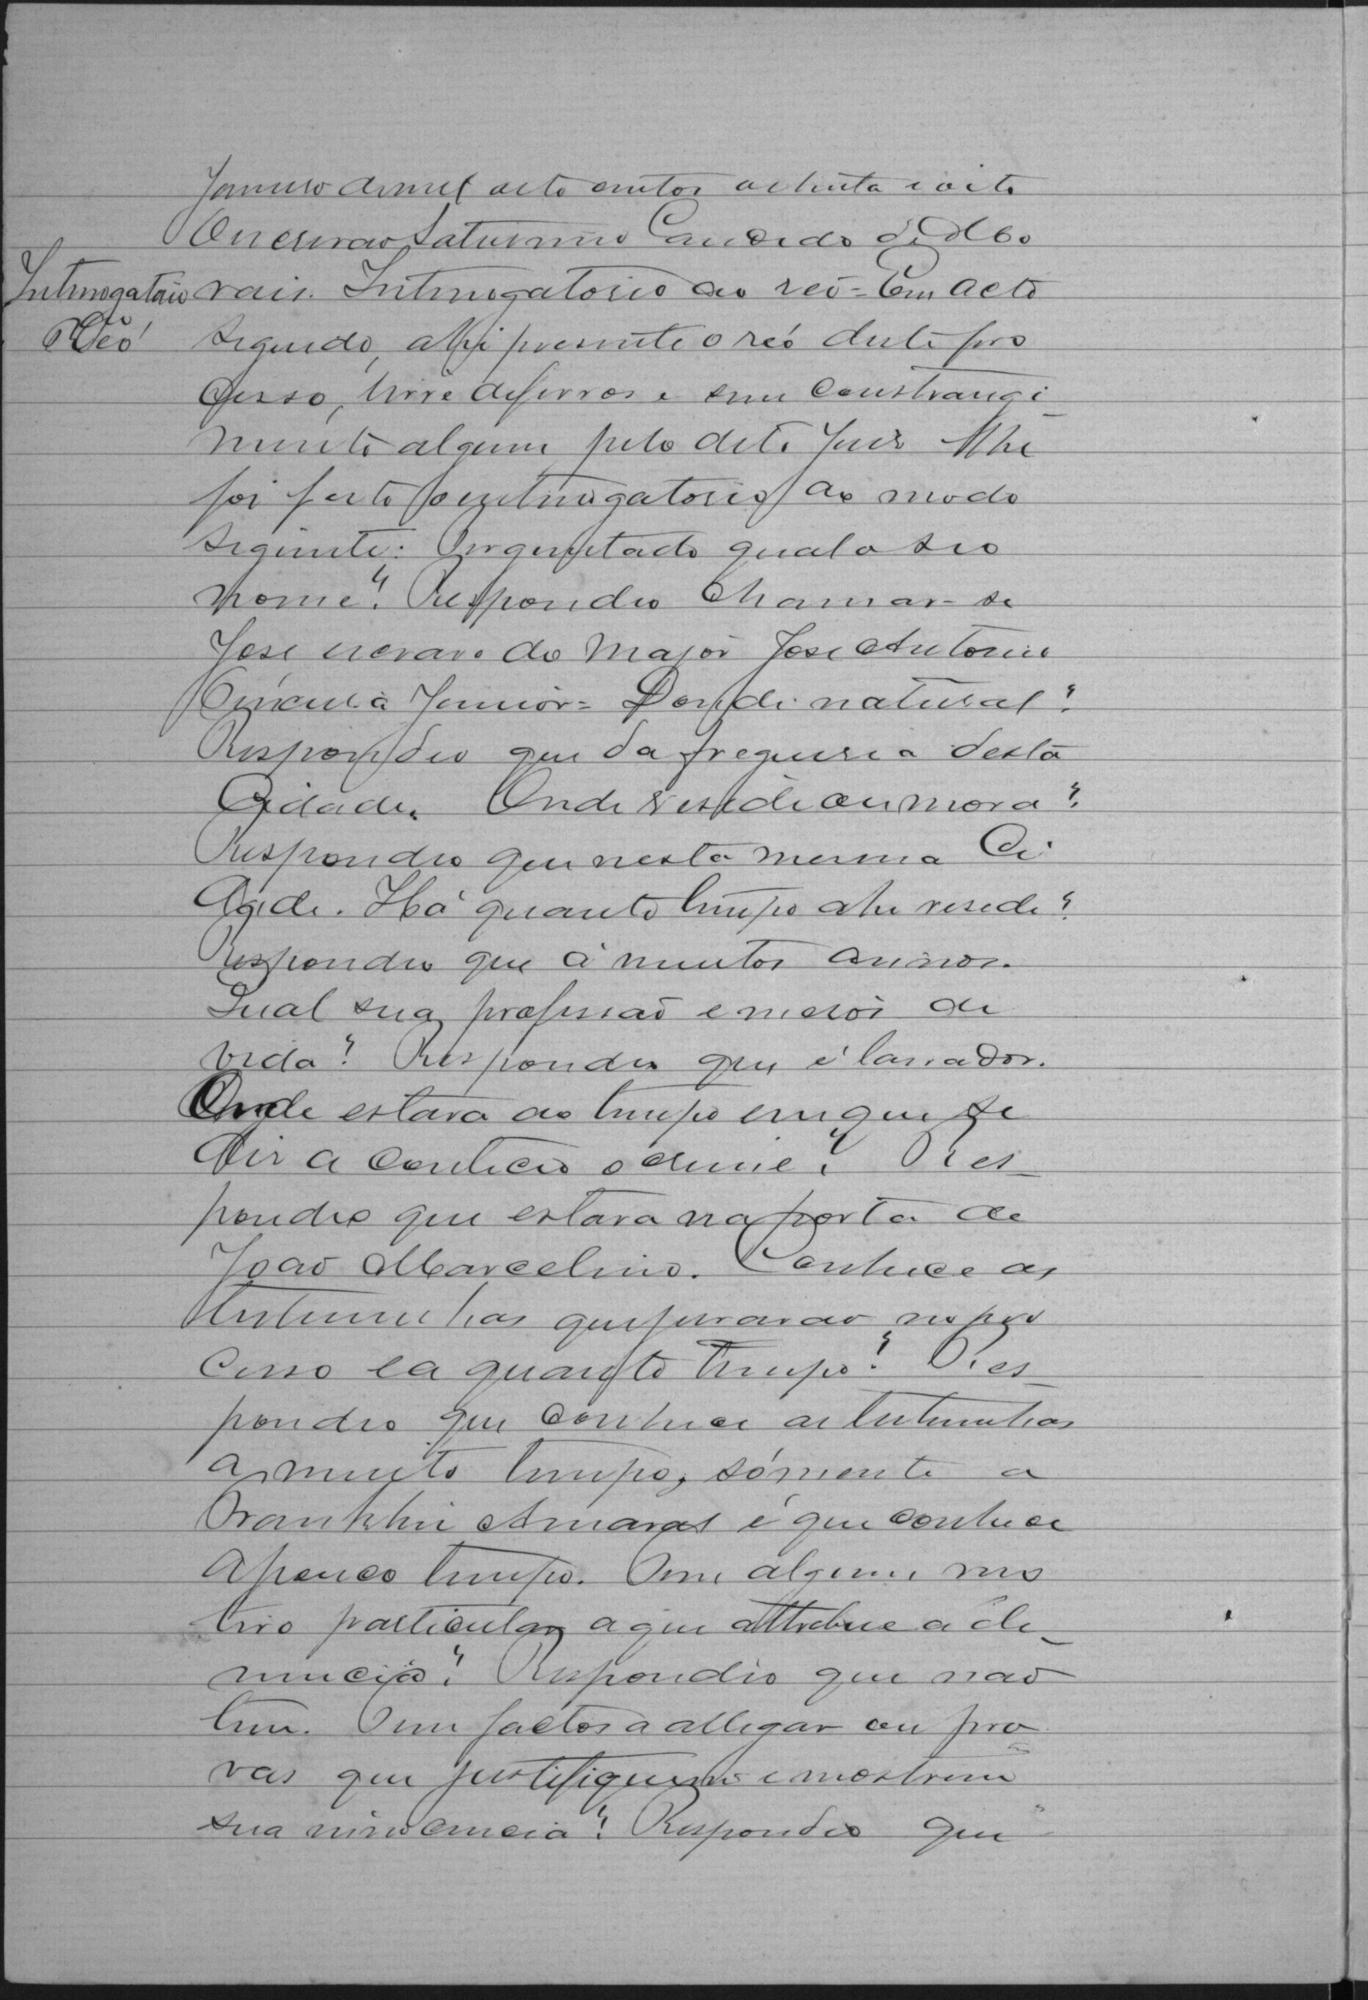 Janeiro de mil oito centos oitenta e oito
O escrivão Saturnino Candido de Mo
Interrogatorio
raes. Interrogatorio ao reo = Em acto
Reó
seguido, ahi presente o reó deste pro
cesso, livre de ferros e sem constrangi-
mento algum pelo dito Juis lhe
foi feito o interrogatorio ao modo
seguinte: Perguntado qual o seo
nome? Respondeo chamar-se
José escravo do Major José Antonio
Junior = Donde natural?
Respondeo que da freguesia desta
Cidade. Onde reside ou mora?
Respondeo que nesta mesma Ci
dade. Há quanto tempo ahi reside?
Respondeo que à muitos annos.
Qual sua profissão e meios de
vida? Respondeo que é lavrador.
Onde estava ao tempo em que se
diz aconteceo o crime? Res-
pondeo que estava na porta de
João Marcelino. Conhece as
testemunhas que jurarão no pro
cesso e a quanto tempo? Res-
pondeo que conhece as testemunhas
a muito tempo, sómente a
Franklin Amaral é que conhece
a pouco tempo. Tem algum mo
tivo particular a que attribue a de-
nuncia? Respondeo que não
tem. Tem factos a allegar ou pro
vas que justifiquem e mostrem
sua innocencia? Respondeo que